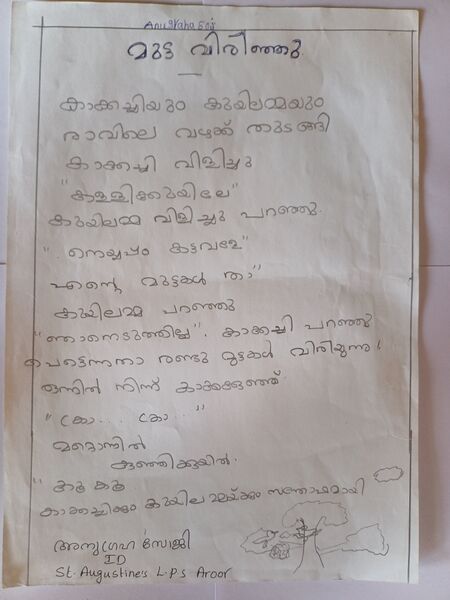 Anugraha Soji
മുട്ട വിരിഞ്ഞു
കാക്കച്ചിയും കുയിലമ്മയും
രാവിലെ വഴക്ക് തുടങ്ങി
കാക്കച്ചി വിളിച്ചു
"കള്ളിക്കുയിലേ"
കുയിലമ്മ വിളിച്ചു പറഞ്ഞു.
"നെയ്യപ്പം കട്ടവളേ"
എന്റെ മുട്ടകൾ താ"
കുയിലമ്മ പറഞ്ഞു
"ഞാനെടുത്തില്ല". കാക്കച്ചി പറഞ്ഞു
പെട്ടെന്നതാ രണ്ടു മുട്ടകൾ വിരിയുന്നു!
ഒന്നിൽ നിന്ന് കാക്കക്കുഞ്ഞ്
"ക്രാ... ക്രാ..."
മറ്റൊന്നിൽ
കുഞ്ഞിക്കുയിൽ.
"കൂ കൂ
കാക്കച്ചിക്കും കുയിലമ്മയ്ക്കും സന്തോഷമായി
അനുഗ്രഹ സോജി
ID
St. Augustine's L.P.S Aroor